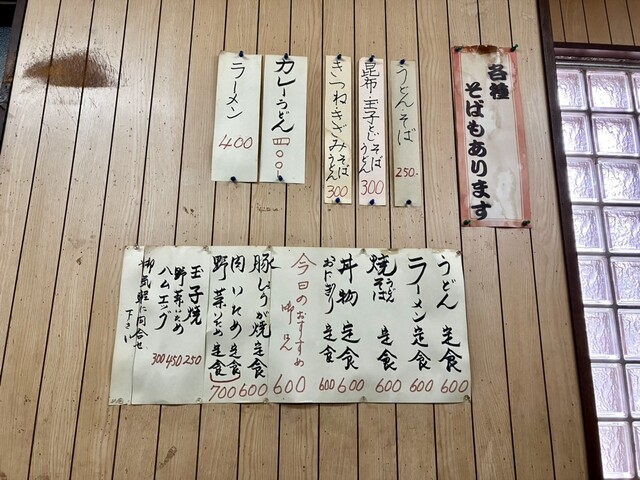 各種
そばもあります
うどん・そば 250.
昆布・玉子とじそばうどん 300
きつね・きざみそばうどん 300
カレーうどん 四〇〇
ラーメン 400
うどん 定食 600
ラーメン 定食 600
焼そばうどん 定食 600
丼物 定食 600
おにぎり 定食 600
今日のおすすめ 600
豚しょうが焼 定食 600
肉いため 定食 700
野菜いため 定食
玉子焼 250
野菜いため 450
ハムエッグ 300
御気軽に問合せ
下さい